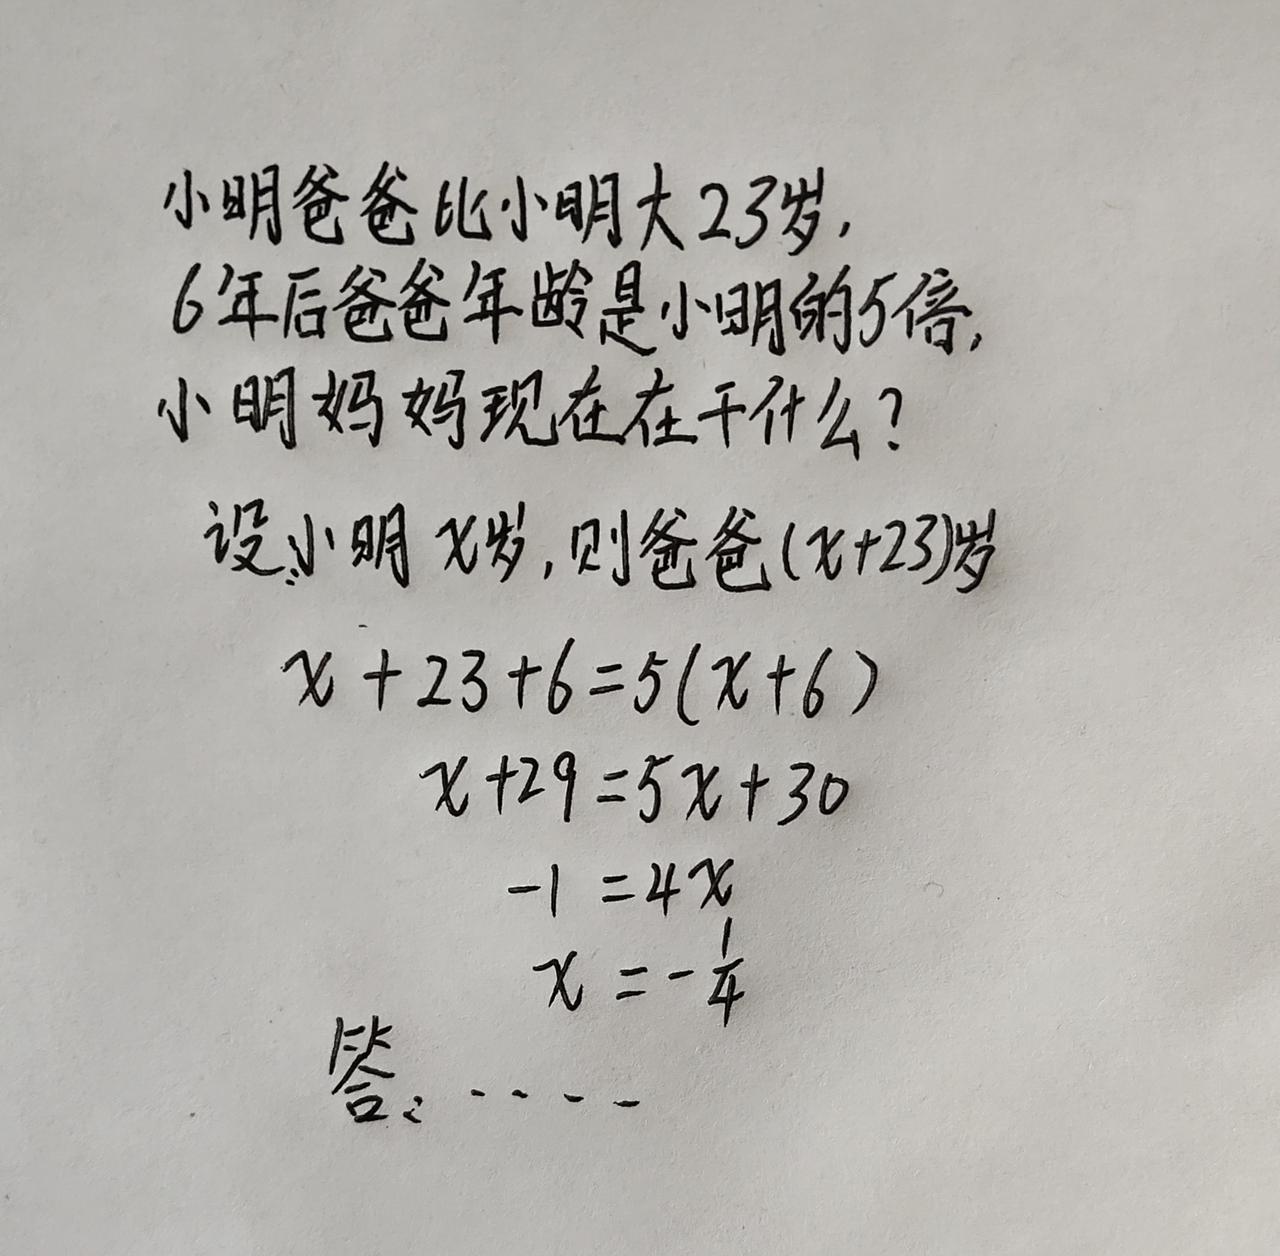 小明爸爸比小明大23岁,
6年后爸爸年龄是小明的5倍,
小明妈妈现在在干什么?
设:小明x岁,则爸爸(x+23)岁
x+23+6=5(x+6)
x+29=5x+30
-1=4x
x=-1/4
答:....